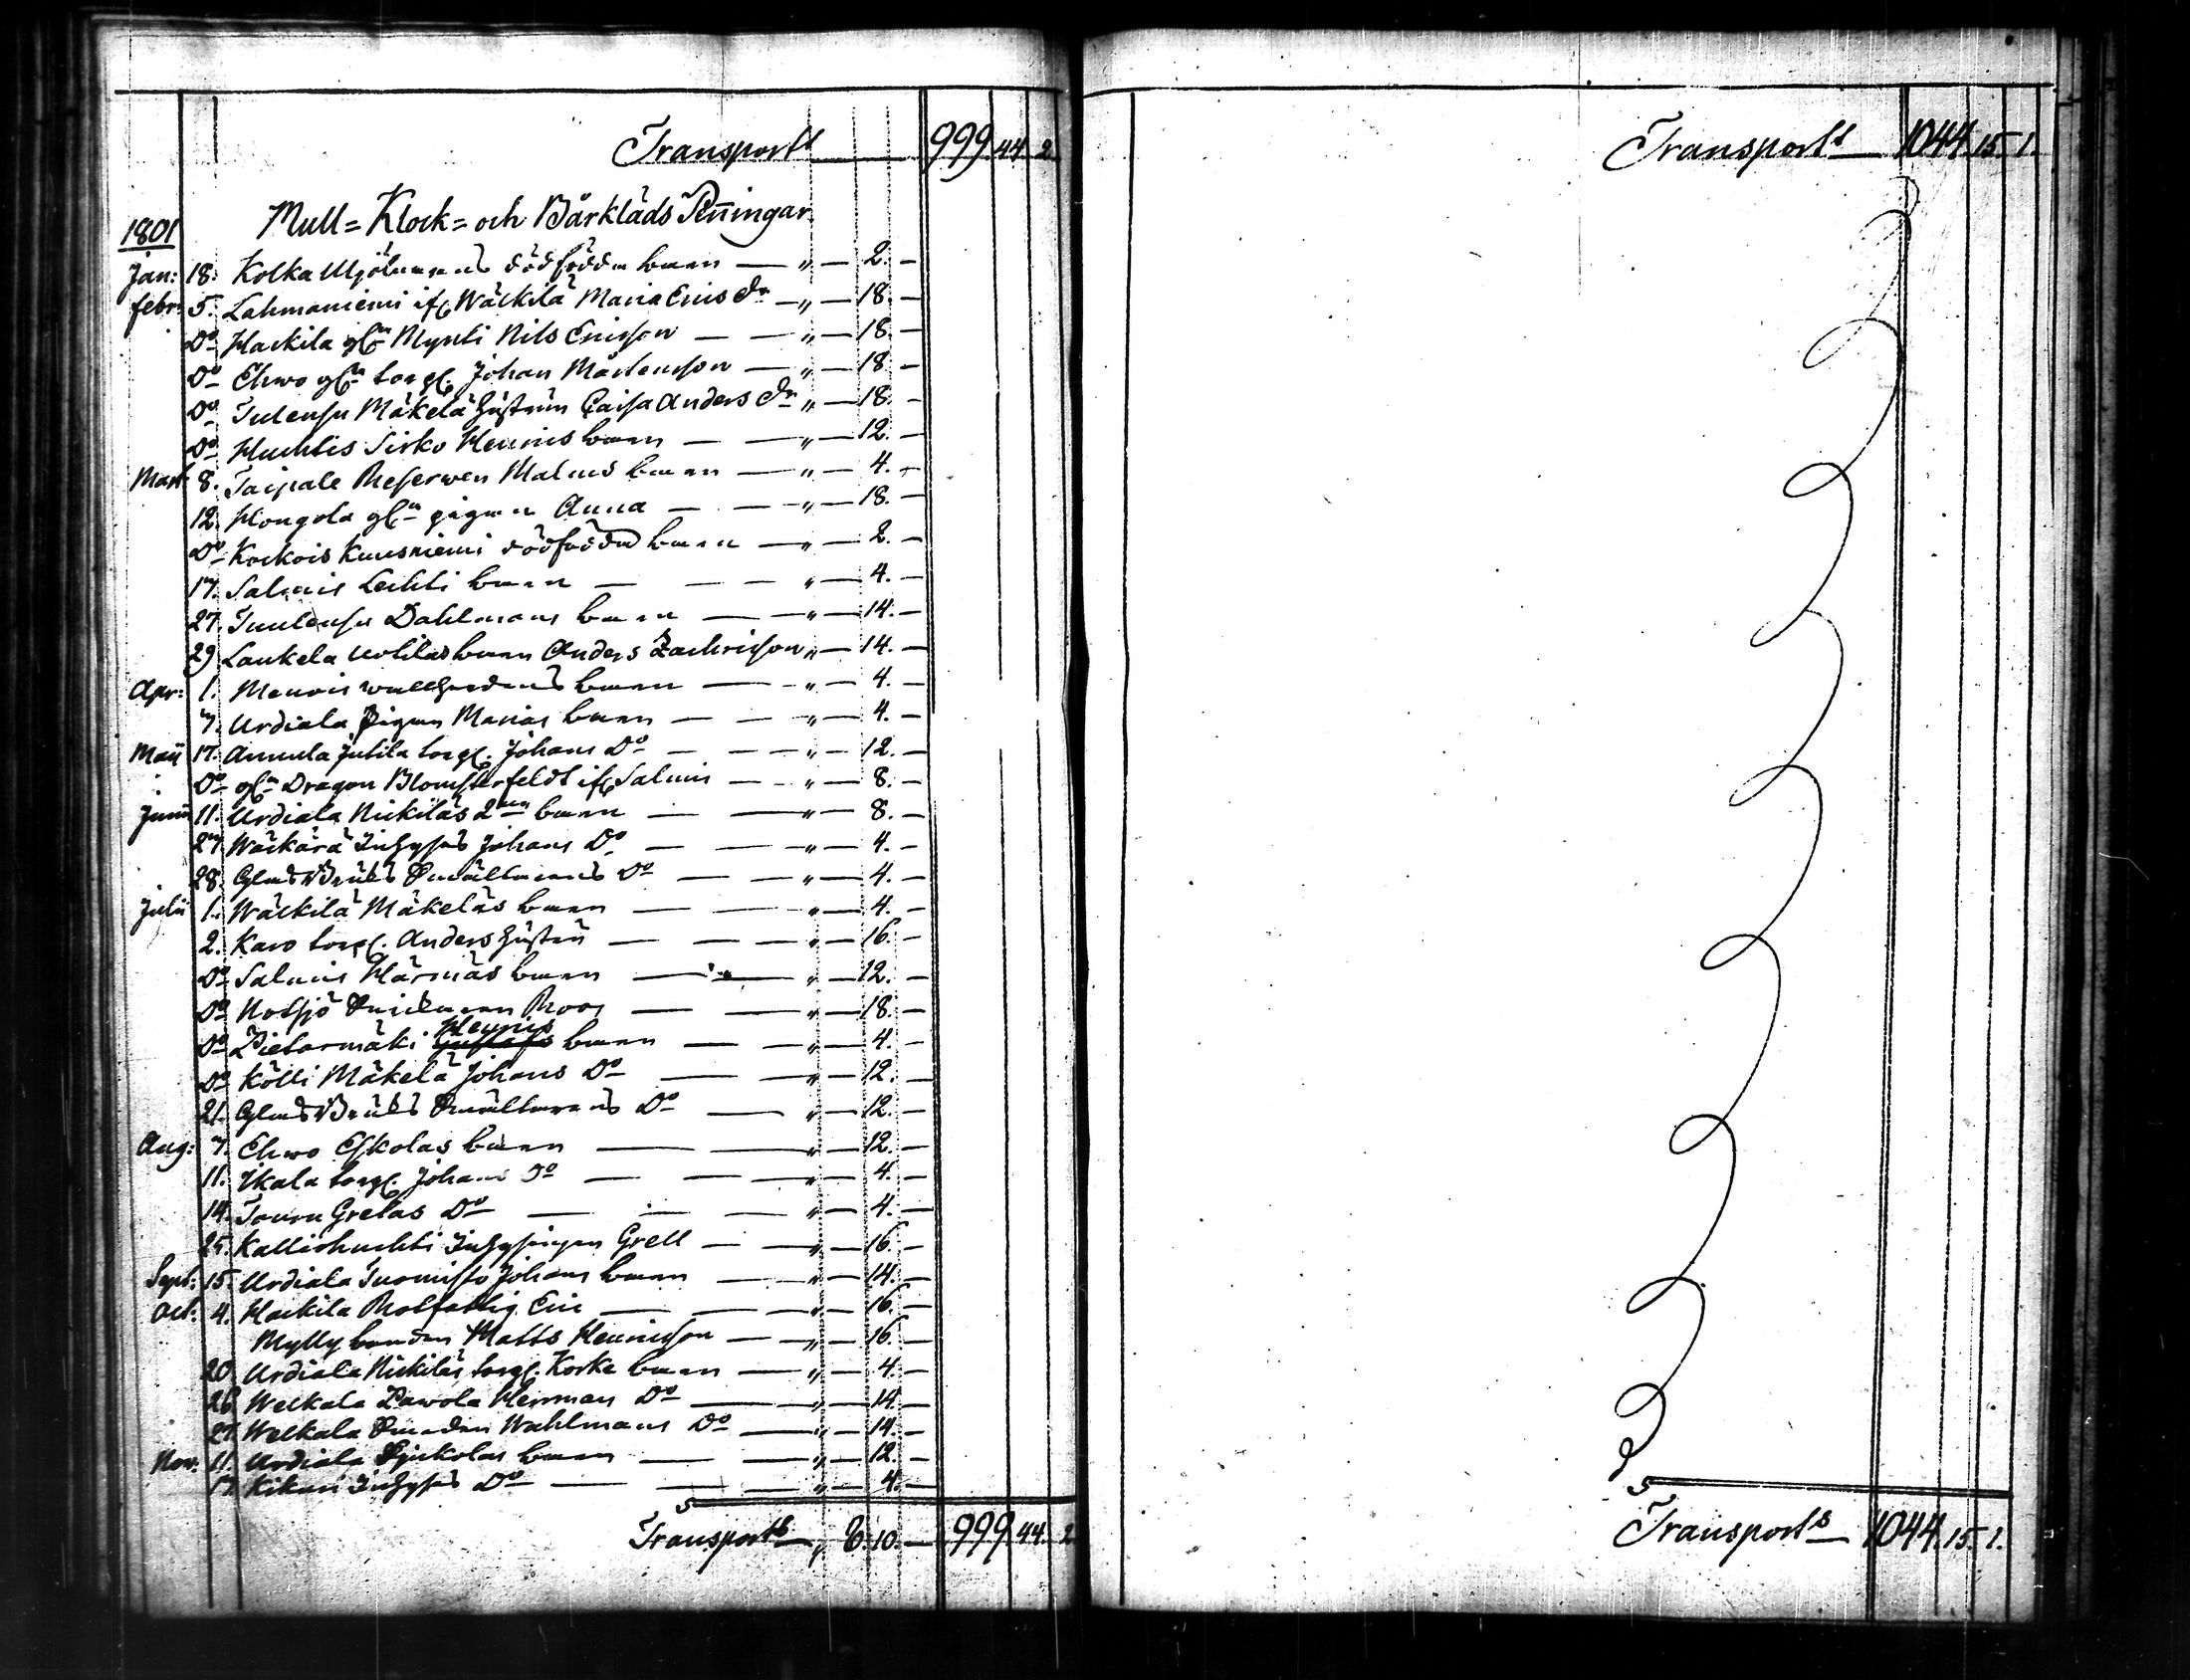 Transport 999. 44. 2
Mull= Klock= och Bårkläds Peñingar
1801
Jan: 18. Kolka Mjölnarens dödfödda barn — „ — 2. —
Febr: 5. Lahmaniemi ifr Wäckilä Maria Erics dr — „ — 18. —
Do Hackila gln Mynti Nils Ericsson — „ — 18. —
Do Ehwo gln torp. Johan Mårtensson — „ — 18 —
Do Tulensu Mäkelä Hustrun Caisa Anders dr „ — 18. —
Do Huchtis Sirko Henrics barn — „ — 12. —
Mart 8. Taipale Reserwen Malms barn — „ — 4. —
12. Hongola gln pigan Anna — „ — 18. —
Do Kockois Kuusniemi dödfödda barn — „ — 2. —
17. Salmis Lechti barn — „ — 4. —
27. Tuulensu Dahlmans barn — „ — 14. —
29 Laukela Uotilas barn Anders Zachrisson „ — 14. —
Apr: 1. Menois wallherdens barn — „ — 4. —
7. Urdiala Pigan Marias barn — „ — 4. —
Maij 17. Annula Jutila torp. Johans Do — „ — 12. —
Do gln Dragon Blomsterfeldt ifr Salmis — „ — 8. —
Junii 11. Urdiala Nickiläs 2ne barn — „ — 8. —
27 Wäckärä Inhyses Johans Do — „ — 4. —
28 Glas Bruks Smältarens Do — „ — 4. —
Julii 1. Wäckilä Mäkeläs barn — „ — 4. —
2. Karo torp. Anders Hustru — „ — 16. —
Do Salmis Härmäs barn — „ — 12. —
Do Notsjö Roos — „ — 18. —
Do Pietarmäki Gustafs Henrics barn — „ — 4. —
Do Kölli Mäkelä Johans Do — „ — 12. —
21. Glas Bruks Smältarens Do — „ — 12. —
Aug: 7. Ehwo Eskolas barn — „ — 12. —
11. Ikala torp. Johans Do — „ — 4. —
14. Touru Gretas Do — „ — 4. —
25. Kalliohuchti Inhyspigan Grell — „ — 16. —
Sept: 15. Urdiala Tuomisto Johans barn — „ — 14. —
Oct: 4. Hackila Rotfattig Eric — „ — 16. —
Mylly bonden Matts Henricsson — „ — 16. —
20 Urdiala Nickiläs torp. Korke barn — „ — 4. —
26 Welkala Pawola Herman Do — „ — 14. —
27. Welkala Smeden Wahlmans Do — „ — 14. —
Nov. 11. Urdiala barn — „ — 12. —
17. Kikuri Inhyses Do — „ — 4. —
Transport „ 8. 10. — 999. 44. 2
Transport 1044. 15. 1.
Transport 1044. 15. 1.